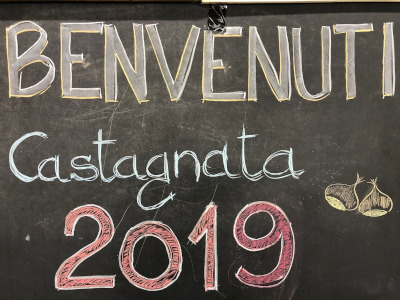 BENVENUTI
Castagnata
2019